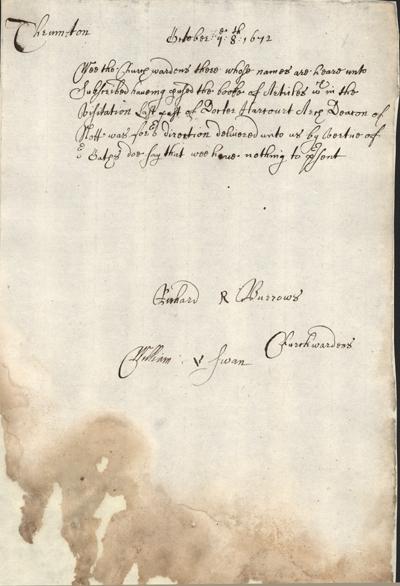 Thrumton
October: yᵉ 8ᵗʰ: 1672
Wee the Church wardens there whose names are heare unto
Subscribed haveing pused the booke of Articles wᶜʰ in the
Visitation Last past of Docter Harcourt Arch Deacon of
Nott: was for oʳ direction delivered unto us by vertue of
oʳ Oathes doe say that wee have nothing to pʳsent
Richard R Burrows
Churchwardens
William : V Swan